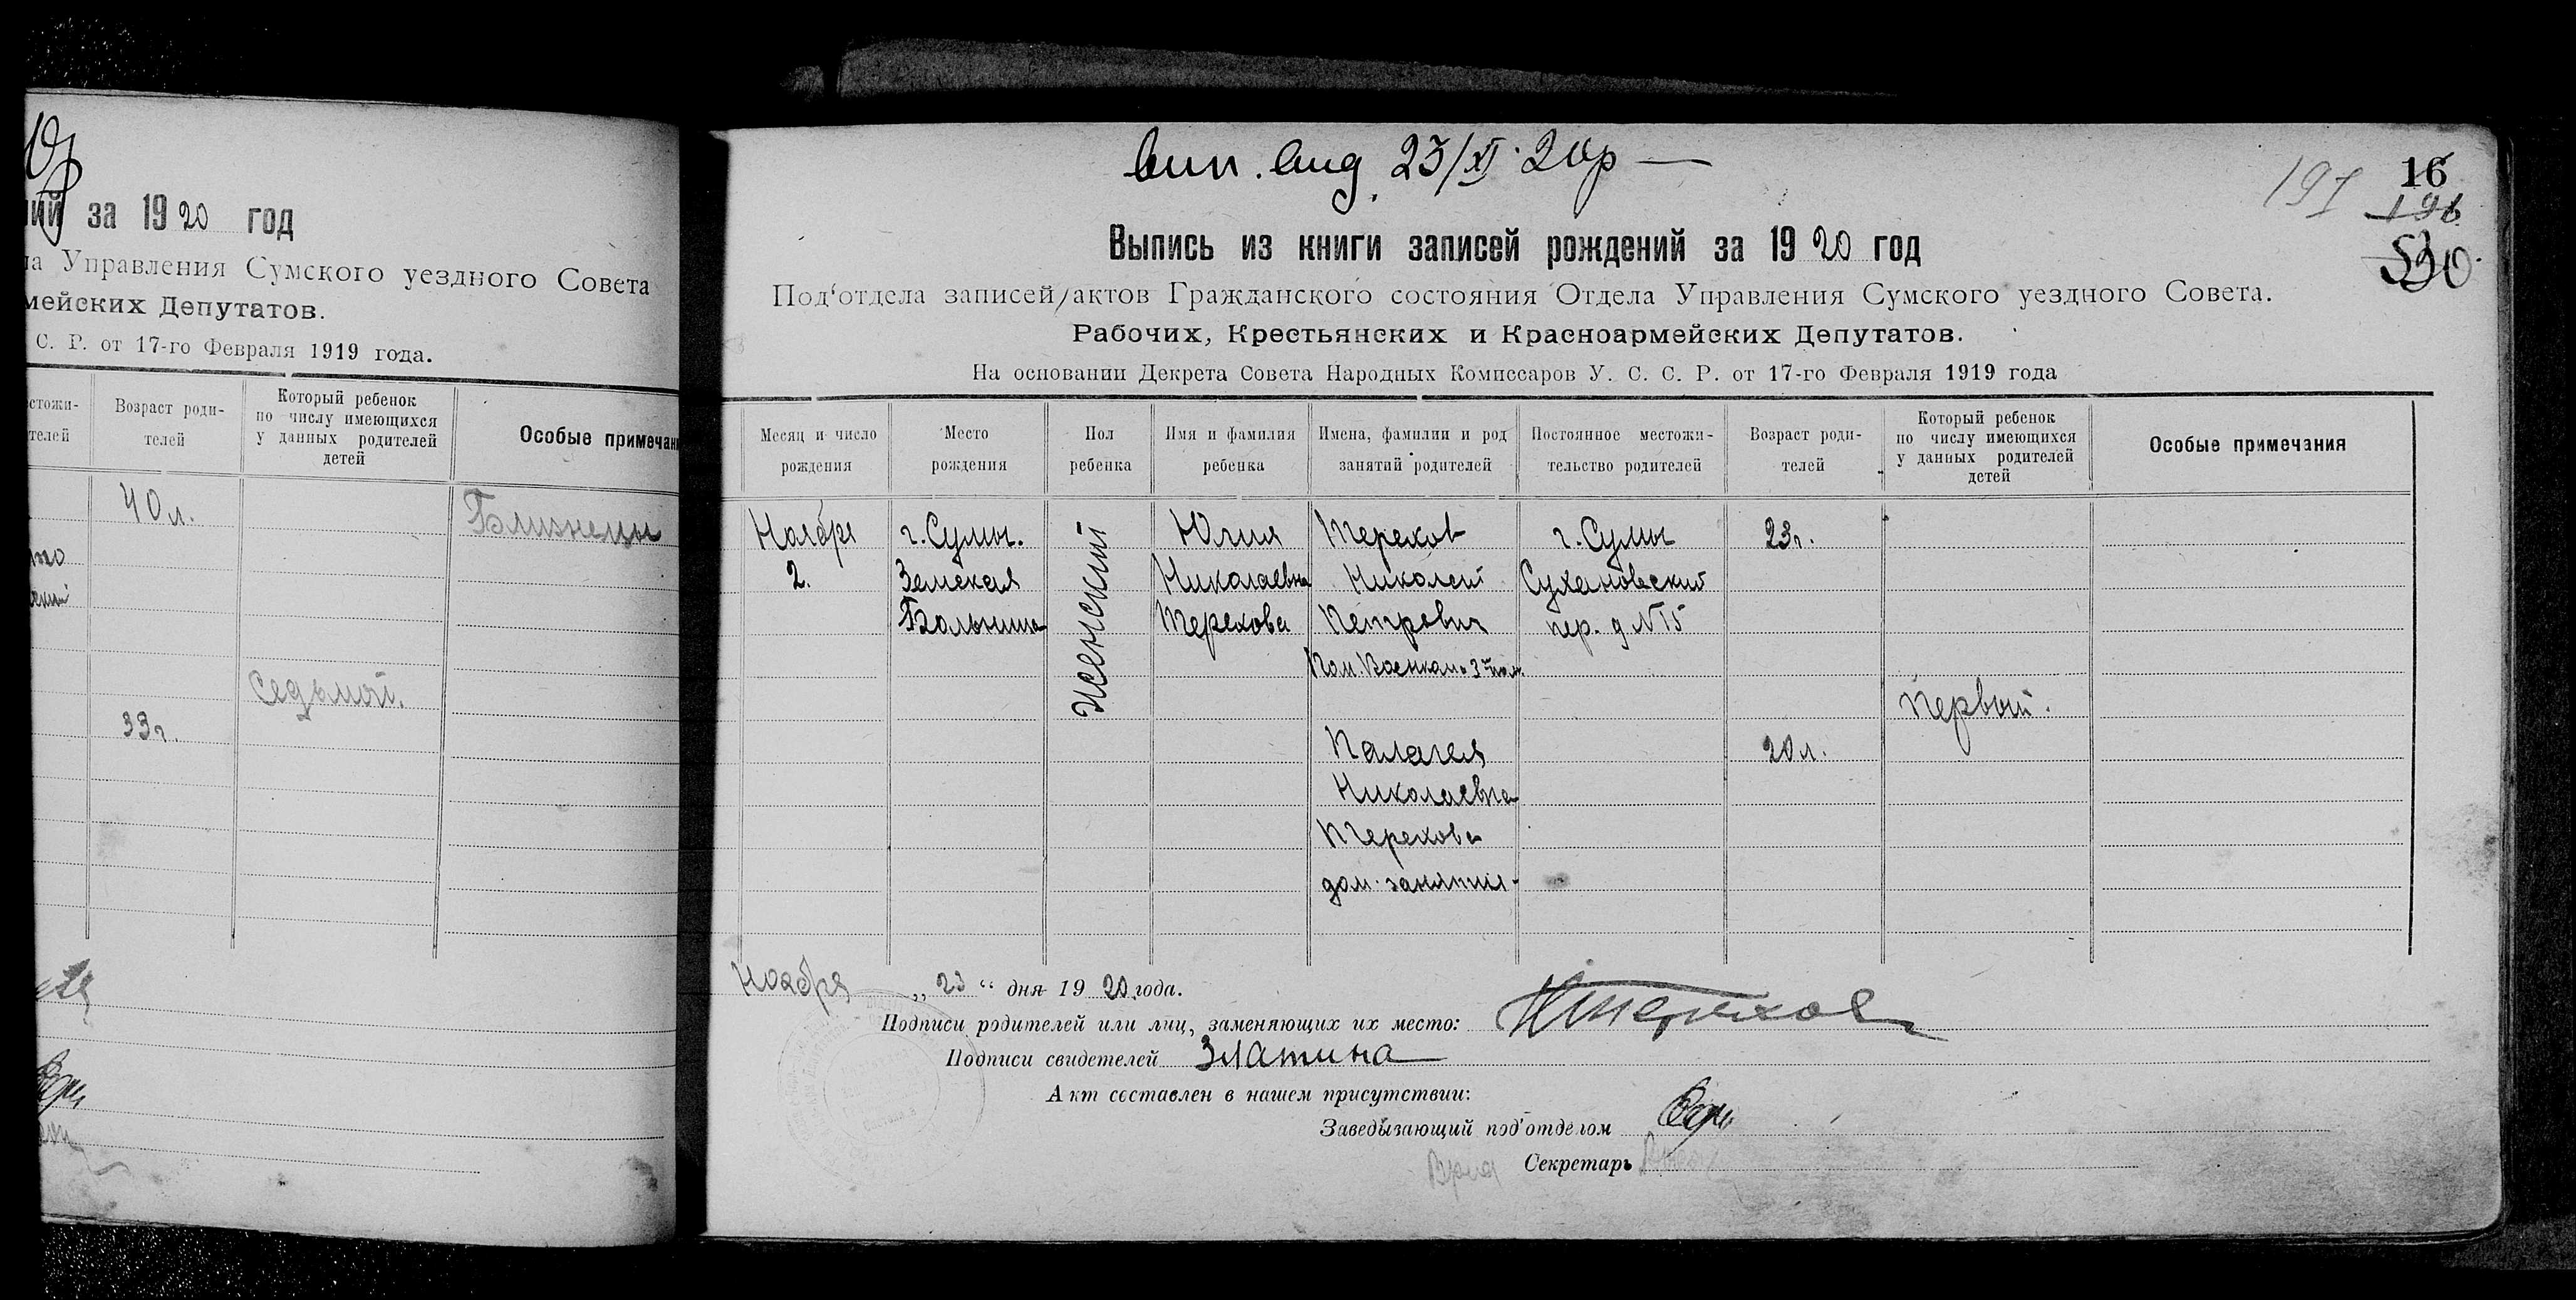 за 1920 год
Управления Сумского уездного Совета
мейских Депутатов.
С. Р. от 17-го Февраля 1919 года.
Возраст роди-
телей
Который ребенок
по числу имеющихся
у данных родителей
детей
Особые примечан
40 л.
Близнецы
Седьмой.
33 г.
вип. вид. 23/XI 20р —
16
191
196
Выпись из книги записей рождений за 1920 год
Под'отдела записей/актов Гражданского состояния Отдела Управления Сумского уездного Совета.
Рабочих, Крестьянских и Красноармейских Депутатов.
На основании Декрета Совета Народных Комиссаров У. С. С. Р. от 17-го Февраля 1919 года
Месяц и число
рождения
Место
рождения
Пол
ребенка
Имя и фамилия
ребенка
Имена, фамилии и род
занятий родителей
Постоянное местожи-
тельство родителей
Возраст роди-
телей
Который ребенок
по числу имеющихся
у данных родителей
детей
Особые примечания
Ноября
2.
г. Сумы.
Земская
Больница
женский
Юлия
Николаевна
Терехова
Терехов
Николай
Петрович
Пом. Военкома 3
г. Сумы
Сухановский
пер. д №15
23 г.
Первый.
Палагея
Николаевна
Терехова
дом. занятия.
20 л.
Ноября „23“ дня 1920 года.
Подписи родителей или лиц, заменяющих их место: НТерехов
Подписи свидетелей Златина
Акт составлен в нашем присутствии:
Заведызающий под'отделом
Секретарь